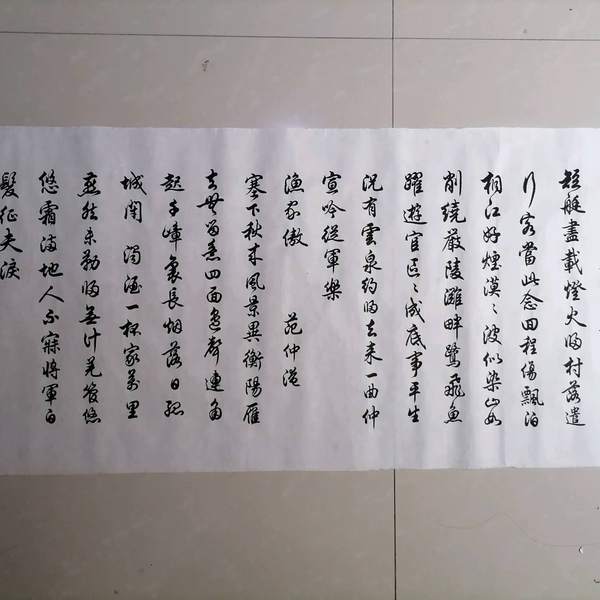 短艇盡載燈火歸村落遣
行客當此念回程傷飄泊
桐江好煙漠〻波似染山如
削繞嚴陵灘畔鷺飛魚
躍遊宦區〻成底事平生
況有雲泉約歸去來一曲仲
宣吟從軍樂
漁家傲 范仲淹
塞下秋來風景異衡陽雁
去無留意四面邊聲連角
起千嶂裏長烟落日孤
城閉 濁酒一杯家萬里
燕然未勒歸無計羌管悠
悠霜滿地人不寐將軍白
髮征夫淚